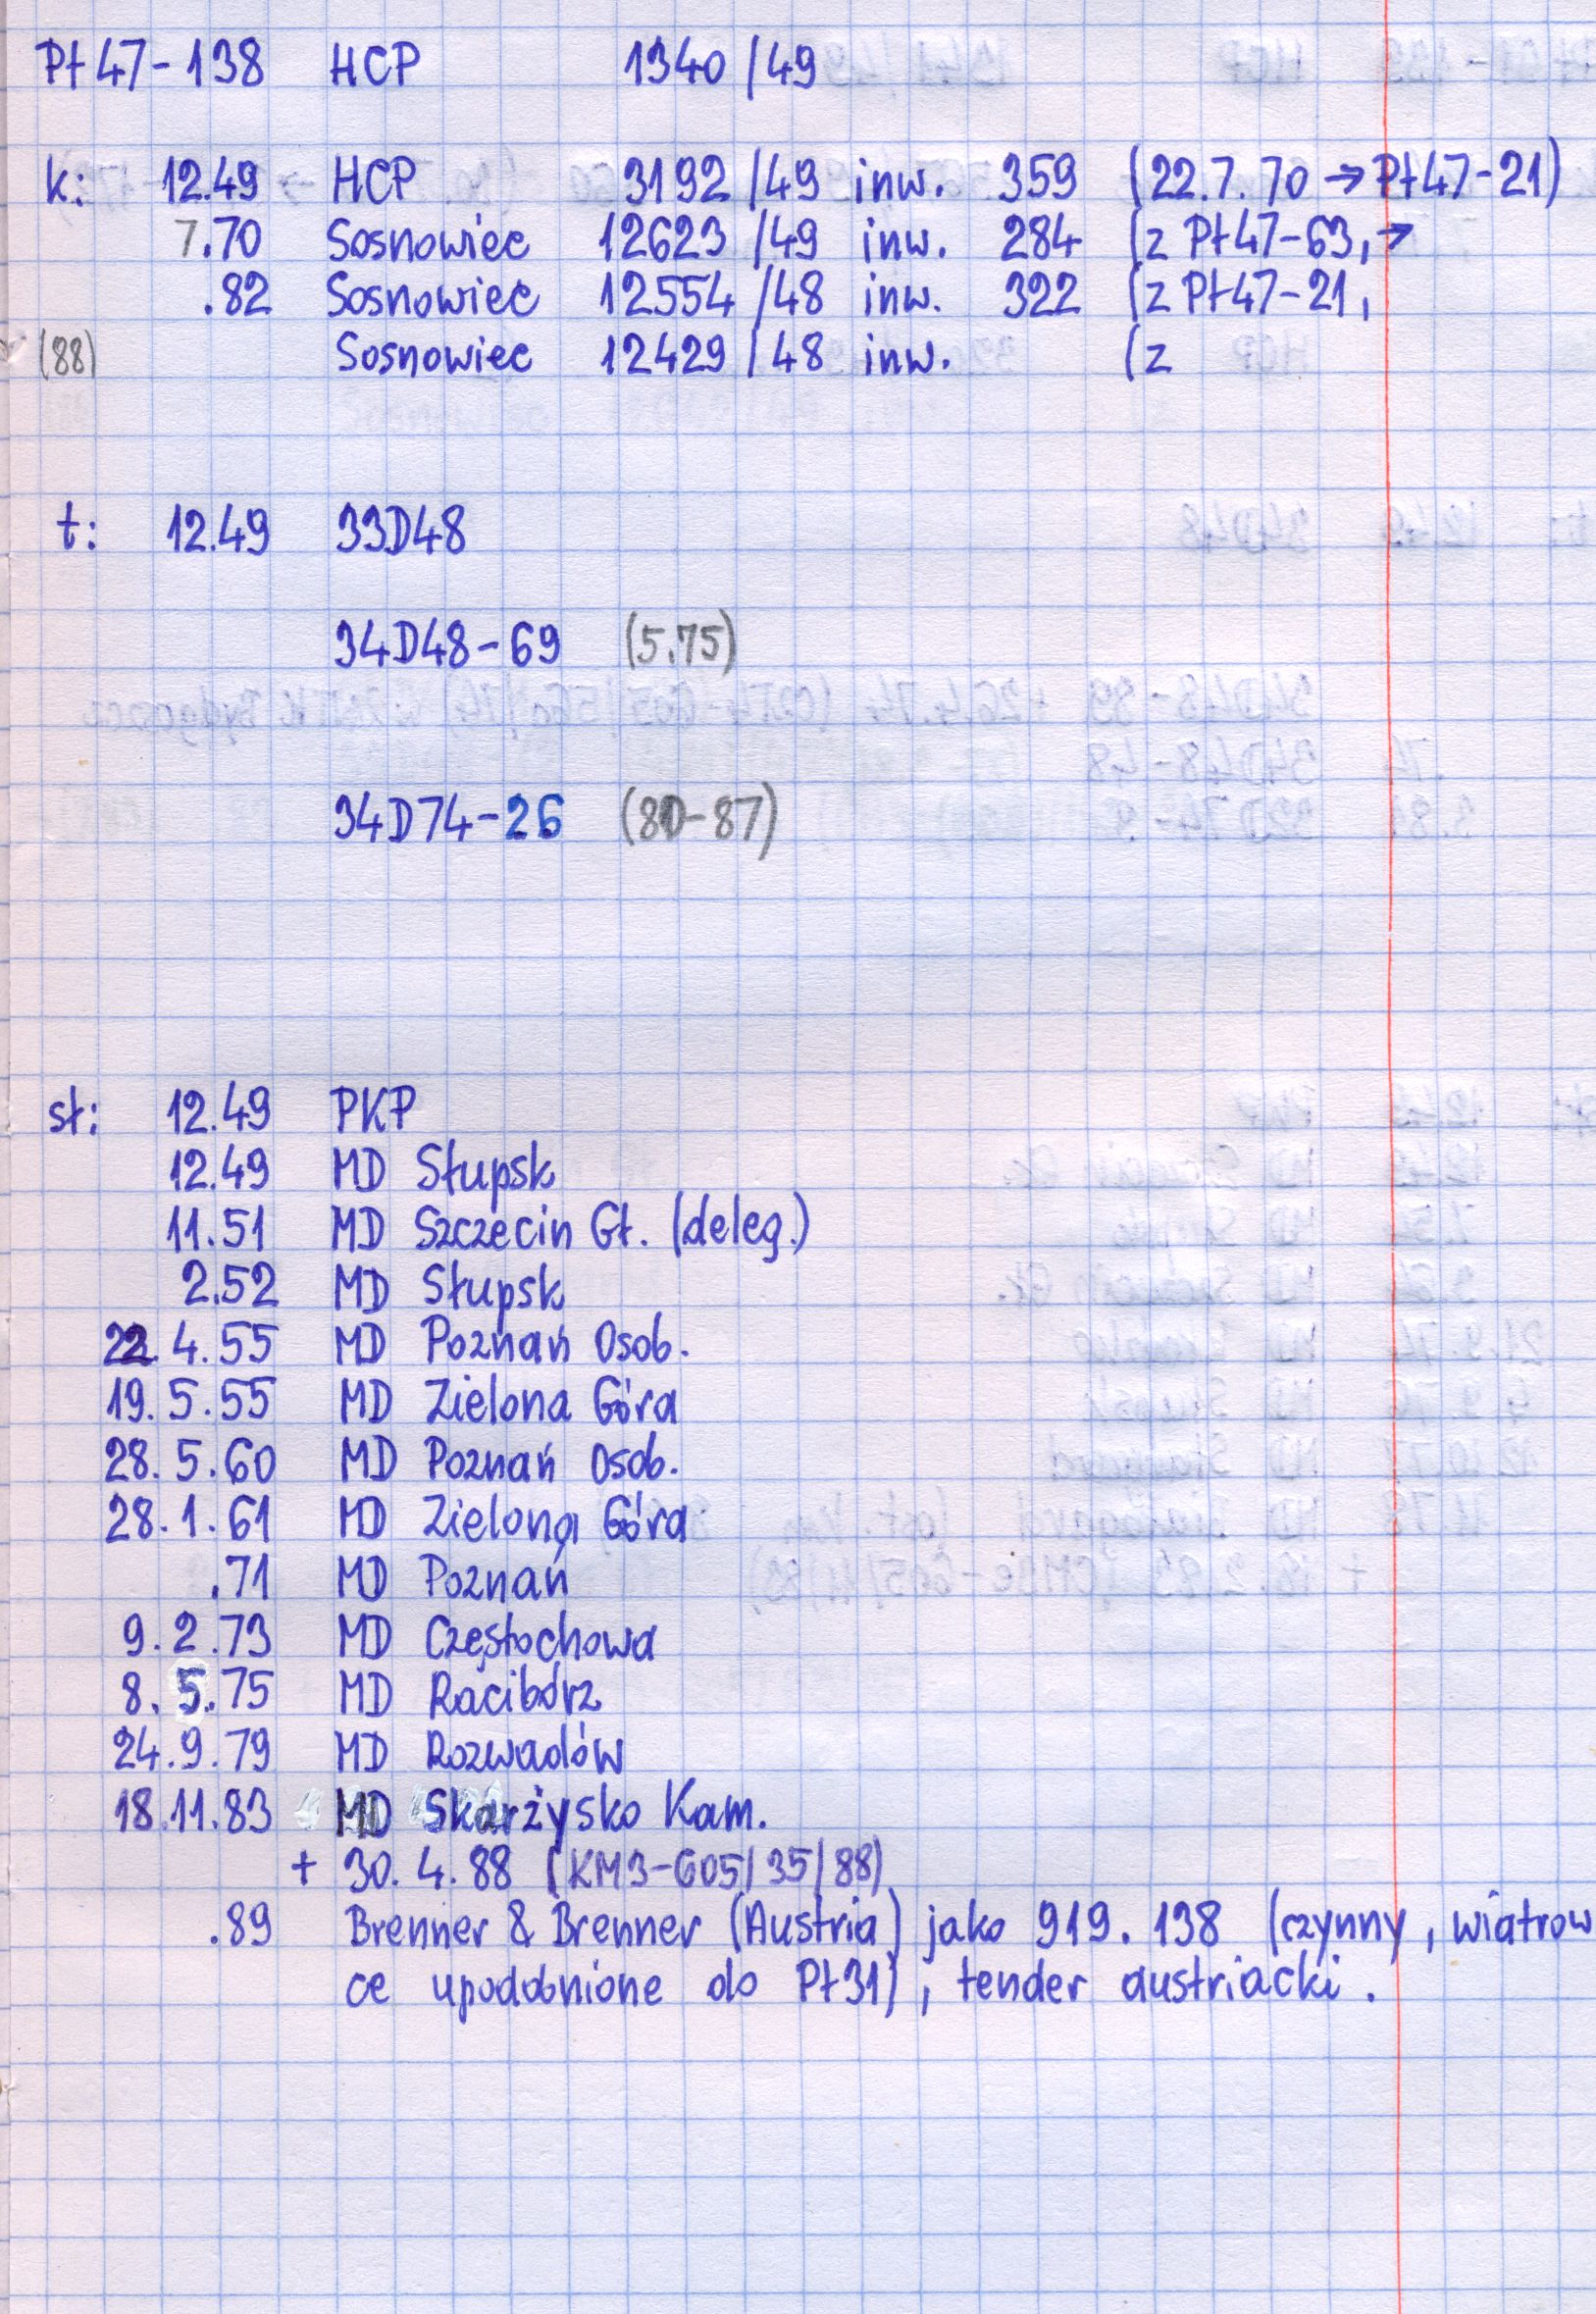 Pt47-138 HCP 1340/49
k: 12.49 HCP 3192/49 inw. 359 (22.7.70 → Pt47-21)
7.70 Sosnowiec 12623/49 inw. 284 (z Pt47-63, →
.82 Sosnowiec 12554/48 inw. 322 (z Pt47-21,
(88) Sosnowiec 12429/48 inw. (z
t: 12.49 33D48
34D48-69 (5.75)
34D74-26 (80-87)
st: 12.49 PKP
12.49 MD Słupsk
11.51 MD Szczecin Gł. (deleg.)
2.52 MD Słupsk
22.4.55 MD Poznań Osob.
19.5.55 MD Zielona Góra
28.5.60 MD Poznań Osob.
28.1.61 MD Zielona Góra
.71 MD Poznań
9.2.73 MD Częstochowa
8.5.75 MD Racibórz
24.9.79 MD Rozwadów
18.11.83 MD Skarżysko Kam.
+ 30.4.88 (KM3-605/35/88)
.89 Brenner & Brenner (Austria) jako 919.138 (czynny, wiatrow
ce upodobnione do Pt31), tender austriacki.